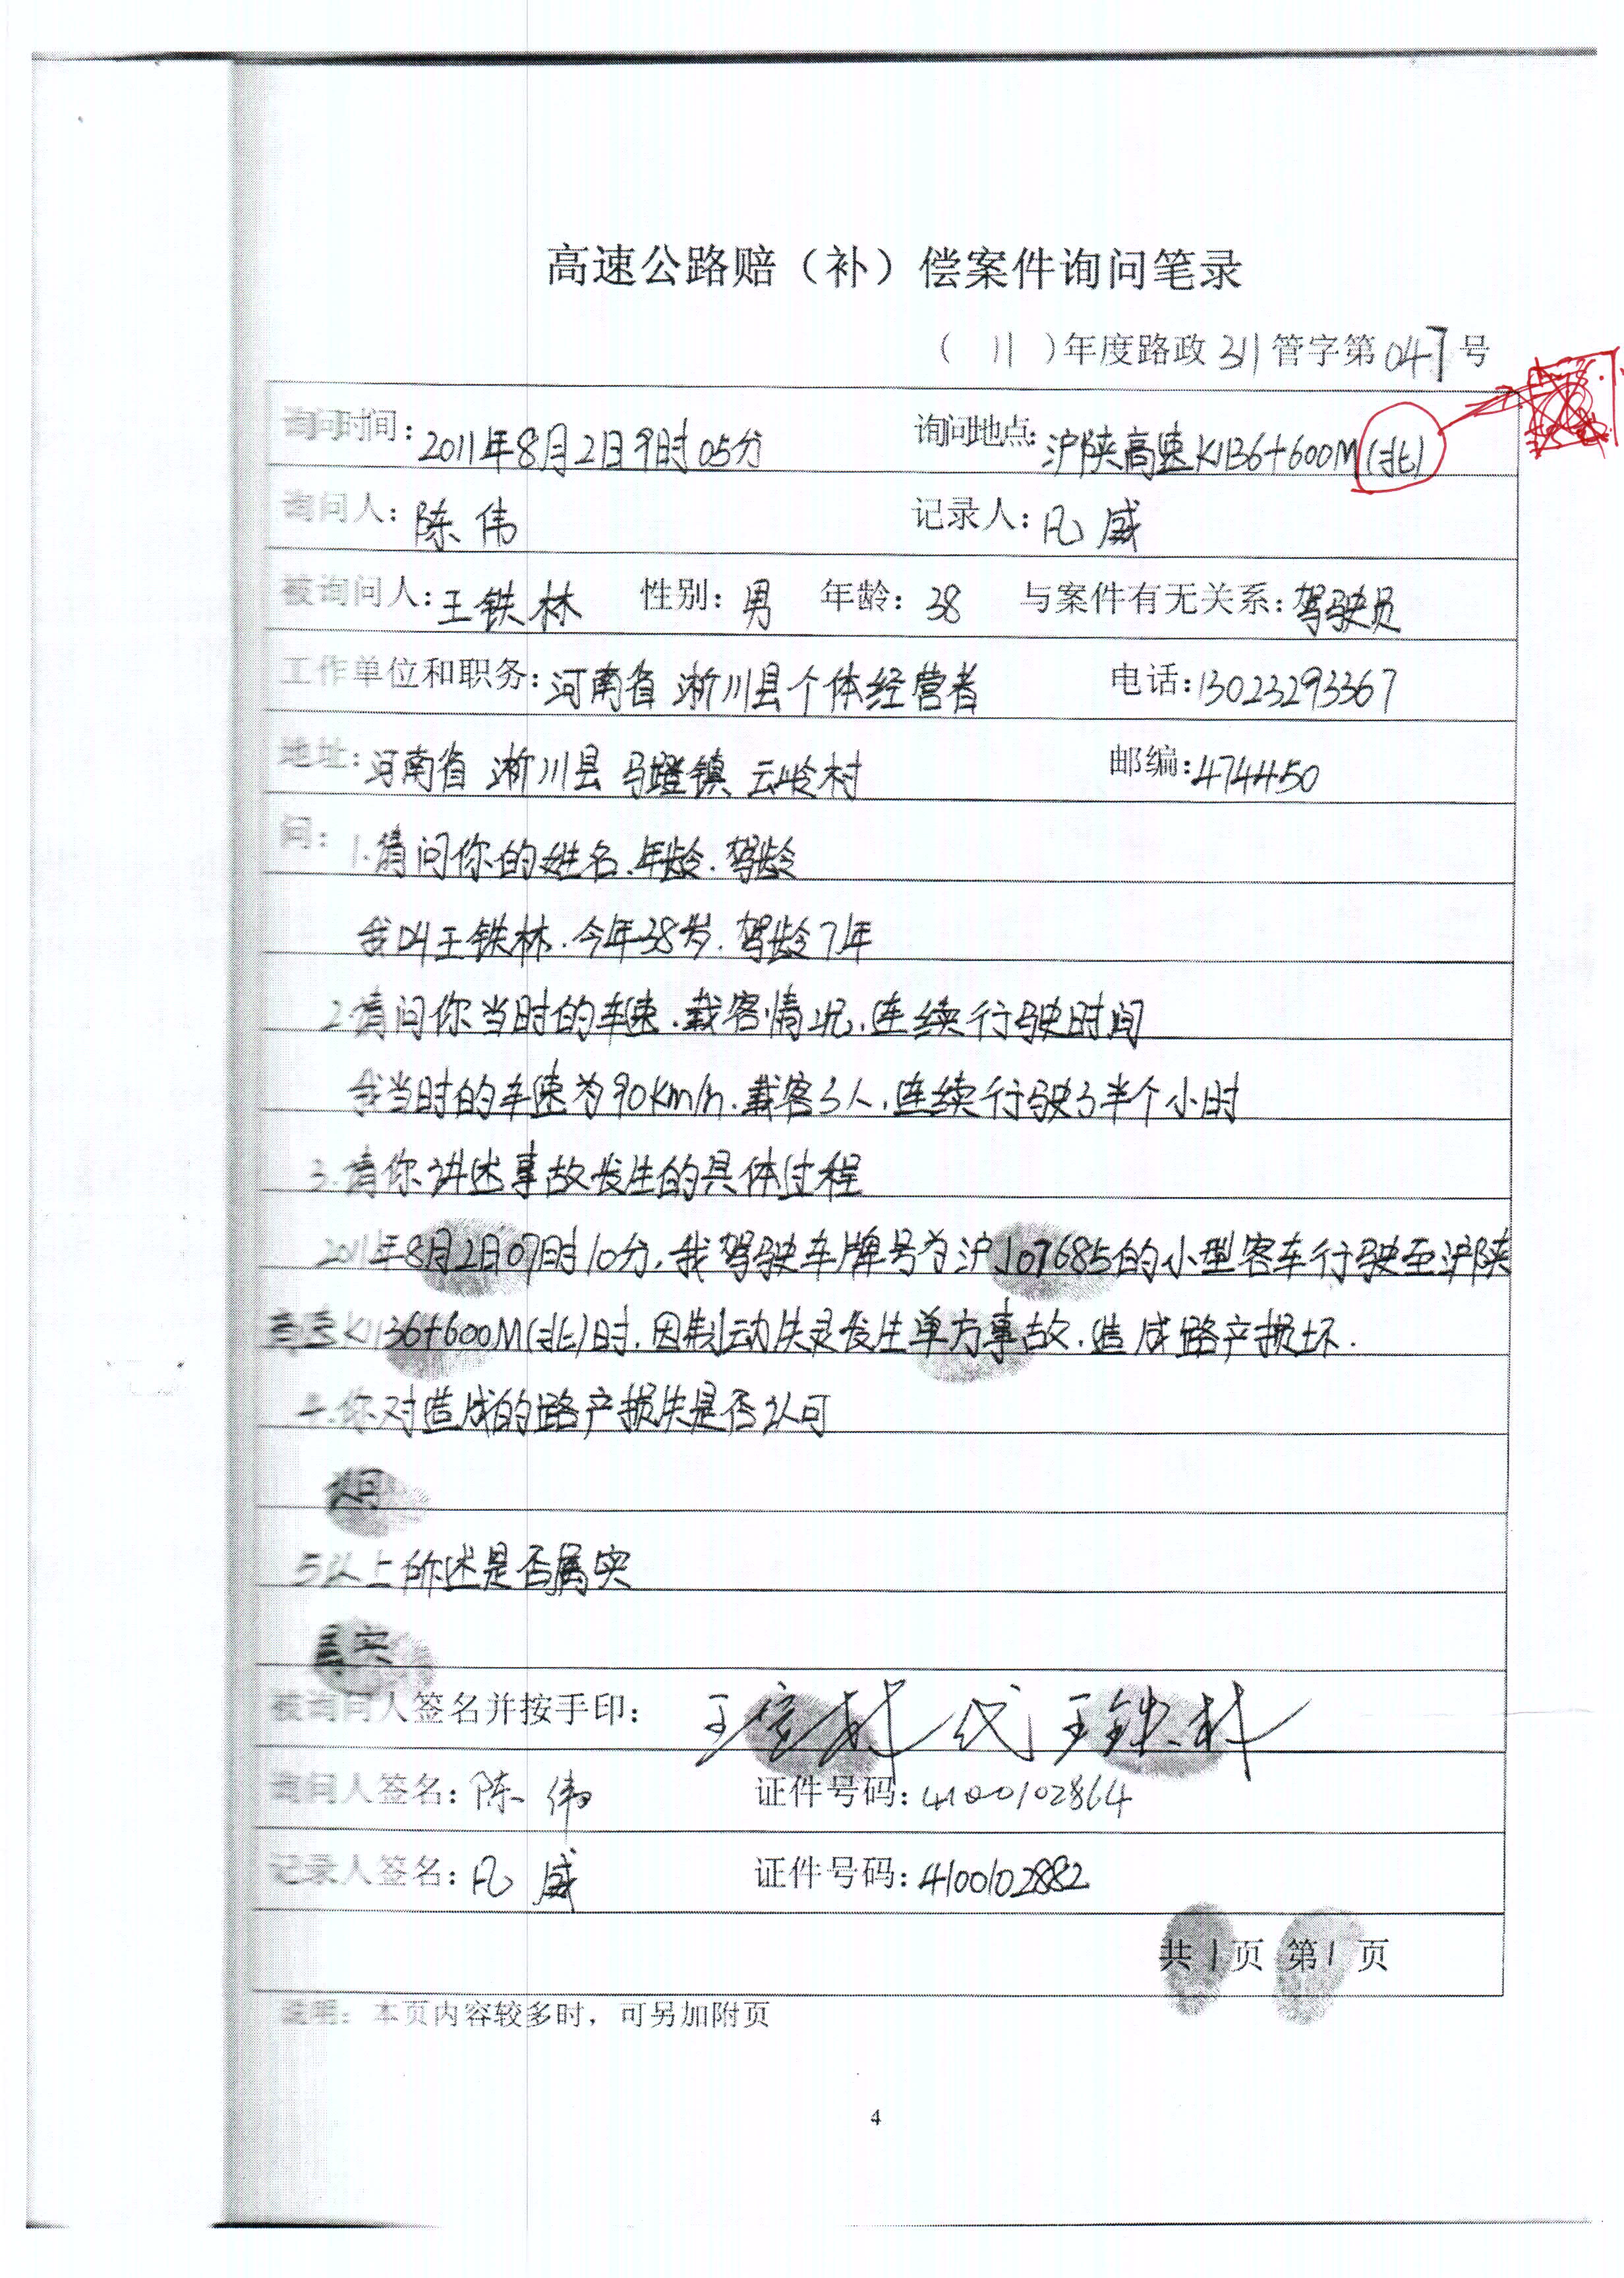 高速公路赔（补）偿案件询问笔录
（ 11 ）年度路政311管字第047号
询问时间：2011年8月2日9时05分 询问地点：沪陕高速K1136+600M(北)
询问人：陈伟 记录人：凡威
被询问人：王铁林 性别：男 年龄：38 与案件有无关系：驾驶员
工作单位和职务：河南省淅川县个体经营者 电话：13023293367
地址：河南省淅川县马蹬镇云岭村 邮编：474450
问：1.请问你的姓名.年龄.驾龄
我叫王铁林.今年38岁.驾龄7年
2.请问你当时的车速.载客情况.连续行驶时间
我当时的车速为90Km/h.载客3人.连续行驶3半个小时
3.请你讲述事故发生的具体过程
2011年8月2日07时10分.我驾驶车牌号为沪J07685的小型客车行驶至沪陕
高速K1136+600M(北)时.因制动失灵发生单方事故.造成路产损坏.
4.你对造成的路产损失是否认可
认可
5以上所述是否属实
属实
被询问人签名并按手印： 代王铁林
询问人签名：陈伟 证件号码：4100102864
记录人签名：凡威 证件号码：4100102882
共1页 第1页
说明：本页内容较多时，可另加附页
4